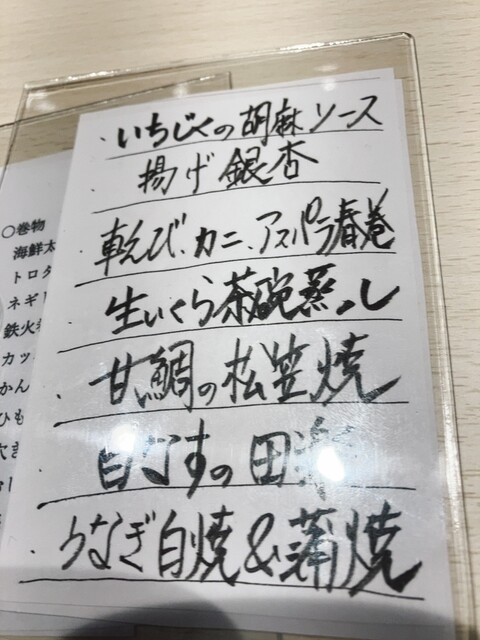 ・いちじくの胡麻ソース
・揚げ銀杏
・車えび、カニ、アスパラ春巻
・生いくら茶碗蒸し
・甘鯛の松笠焼
・白なすの田楽
・うなぎ白焼&蒲焼
〇巻物
海鮮太
トロタ
ネギ
鉄火巻
カッ
かん
ひも
穴き